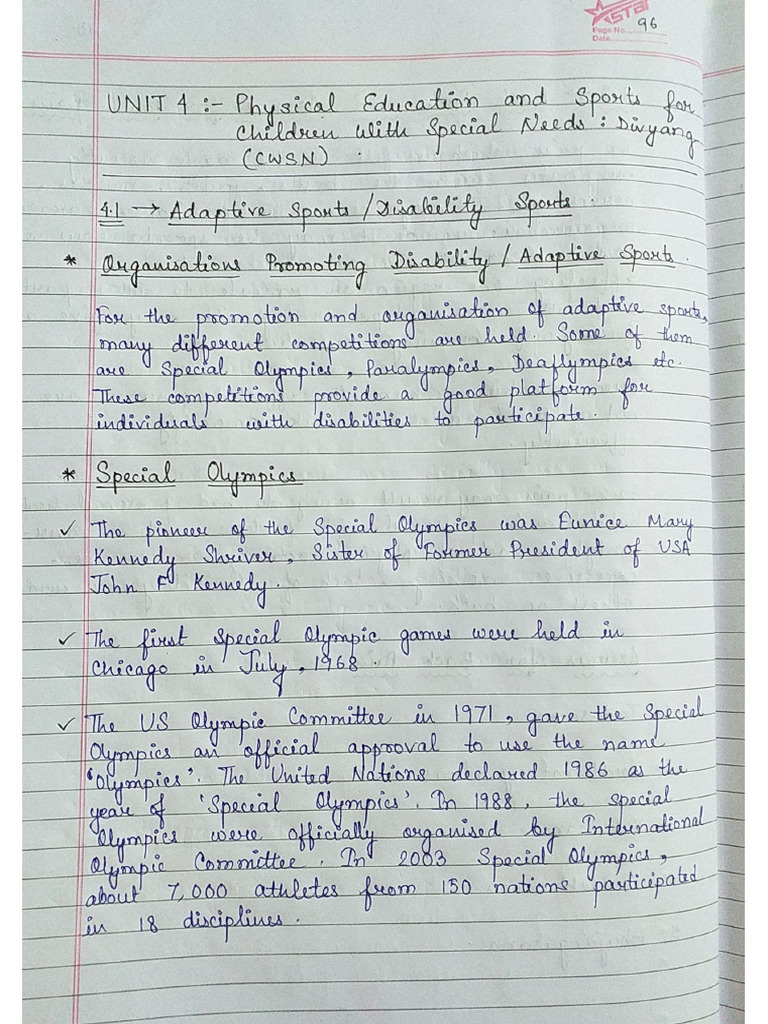 STAR
Page No. 96
Date
UNIT 4 :- Physical Education and Sports for
Children With Special Needs : Divyang
(CWSN)
4.1 → Adaptive Sports / Disability Sports
* Organisations Promoting Disability / Adaptive Sports.
For the promotion and organisation of adaptive sports,
many different competitions are held. Some of them
are Special Olympics, Paralympics, Deaflympics etc.
These competitions provide a good platform for
individuals with disabilities to participate.
* Special Olympics
✓ The pioneer of the Special Olympics was Eunice Mary
Kennedy Shriver, Sister of Former President of USA
John F Kennedy.
✓ The first Special Olympic games were held in
Chicago in July, 1968.
✓ The US Olympic Committee in 1971, gave the Special
Olympics an official approval to use the name
'Olympics'. The United Nations declared 1986 as the
year of 'Special Olympics'. In 1988, the special
Olympics were officially organised by International
Olympic Committee. In 2003 Special Olympics,
about 7,000 athletes from 150 nations participated
in 18 disciplines.